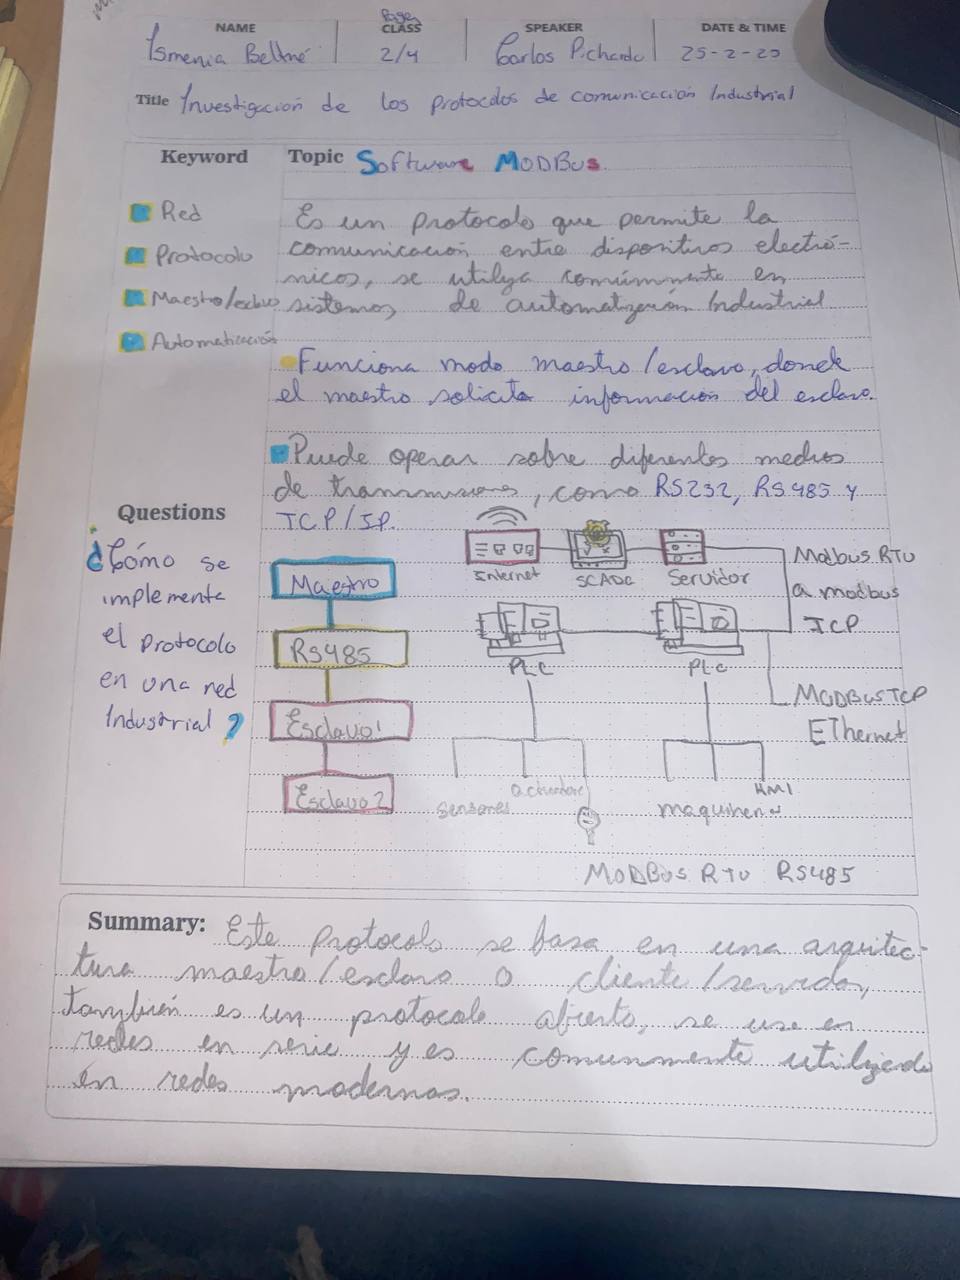 NAME
Page
CLASS
SPEAKER
DATE & TIME
Ismenia Beltré
2/4
Carlos Pichardo
25-2-25
Title Investigación de los protocolos de comunicación Industrial
Keyword
Red
Protocolo
Maestro/esclavo
Automatización
Topic Software MODBus.
Es un protocolo que permite la
comunicación entre dispositivos electró-
nicos, se utiliza comúnmente en
sistemas de automatización Industrial
Funciona modo maestro/esclavo, donde
el maestro solicita información del esclavo.
Puede operar sobre diferentes medios
de transmisiones, como RS232, RS485 y
TCP/IP.
Questions
¿Cómo se
implementa
el protocolo
en una red
Industrial?
Maestro
RS485
Esclavo 1
Esclavo 2
Internet
SCADA
Servidor
Modbus RTU
a modbus
TCP
PLC
PLC
MODBUS TCP
Ethernet
Sensores
actuadore
maquinena
HMI
MODBUS RTU RS485
Summary: Este protocolo se basa en una arquitec-
tura maestro/esclavo o cliente/servidor,
también es un protocolo abierto, se usa en
redes en serie y es comunmente utilizado
en redes modernas.